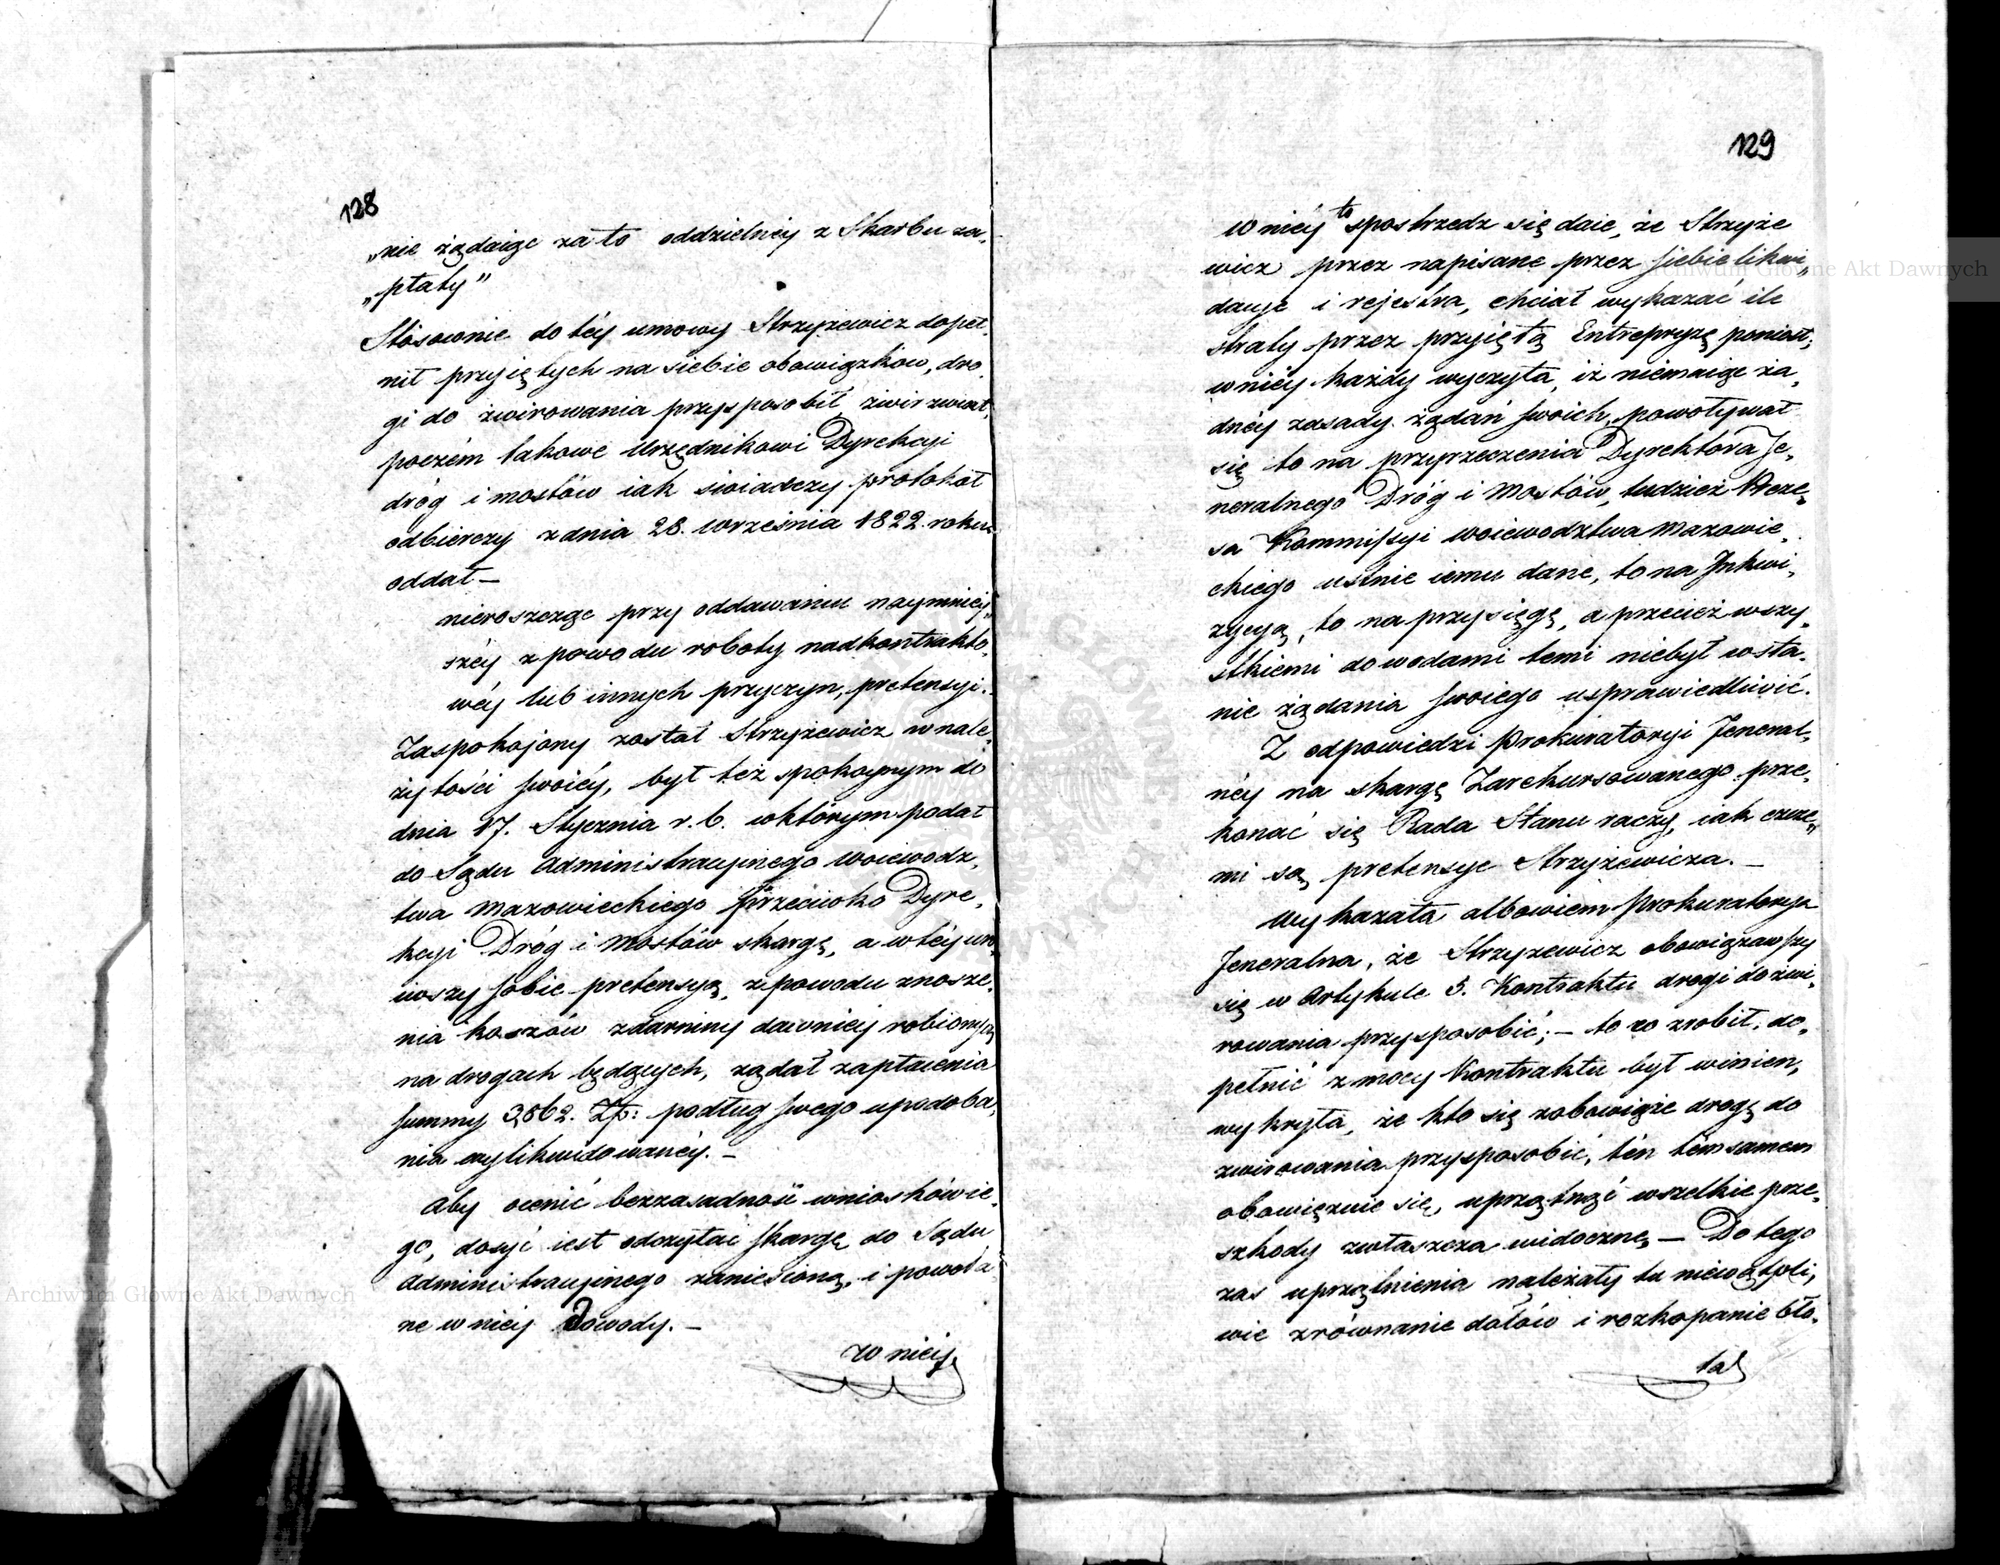 128
„nie żądaiąc za to oddzielnéy z Skarbu za„
„płaty”
Stósownie do téy umowy Strzyżewicz dopeł„
nił przyiętych na siebie obowiązków, dro„
gi do żwirowania przysposobił żwir zwiozł,
poczém takowe Urzędnikowi Dyrekcyi
dróg i mostów iak świadczy protokół
odbierczy z dnia 28. Września 1822. roku
oddał —
nieroszcząc przy oddawaniu naymniey„
széy z powodu roboty nadkontrakto„
wéy lub innych przyczyn, pretensyi.
Zaspokojony został Strzyżewicz w nale„
żytości swoiéy, był też spokoynym do
dnia 17. Stycznia r. b. w którym podał
do Sądu Administracyinego Woiewodz„
twa Mazowieckiego przeciwko Dyre„
kcyi Dróg i Mostów skargę, a w téy uro„
iwszy sobie pretensyą, z powodu znosze„
nia koszów z darniny dawniéy robionych
na drogach będących, żądał zapłacenia
summy 3862. Zp: podług swego upodoba„
nia wylikwidowanéy. —
Aby ocenić bezzasadność wniosków ie„
go, dosyć iest odczytać skargę do Sądu
Administracyinego zaniesioną, i powoła„
ne w niéy dowody. —
w niéy
129
W niéy to spostrzedz się daie, że Strzyże
wicz przez napisane przez siebie likwi„
dacye i rejestra, chciał wykazać ile
straty przez przyiętą Entrepryzę poniosł;
w niéy każdy wyczyta, iż niemaiąc ża„
dnéy zasady żądań swoich, powoływał
się to na przyrzeczenia Dyrektora Je„
neralnego Dróg i Mostów, tudzież Preze„
sa Kommissyi Woiewodztwa Mazowie„
ckiego ustnie iemu dane, to na Inkwi„
zycyą, to na przysięgę, a przecież wszy„
stkiemi dowodami temi niebył w sta„
nie żądania swoiego usprawiedliwić.
Z odpowiedzi Prokuratoryi Jeneral„
néy na skargę Zarekursowanego prze„
konać się Rada Stanu raczy, iak czcze„
mi są pretensye Strzyżewicza. —
Wykazała albowiem Prokuratorya
Jeneralna, że Strzyżewicz obowiązawszy
się w Artykule 3. Kontraktu drogi do żwi„
rowania przysposobić; — to co zrobił, do„
pełnić z mocy Kontraktu był winien,
wykryła, że kto się zobowiąże drogę do
żwirowania przysposobić, tén témsamem
obowięzuie się, uprzątnąć wszelkie prze„
szkody zwłaszcza widoczne, — Do tego
zas uprzątnienia należały tu niewątpli„
wie zrównanie dołów i rozkopanie bło„
ta
Archiwum Główne Akt Dawnych
Archiwum Główne Akt Dawnych